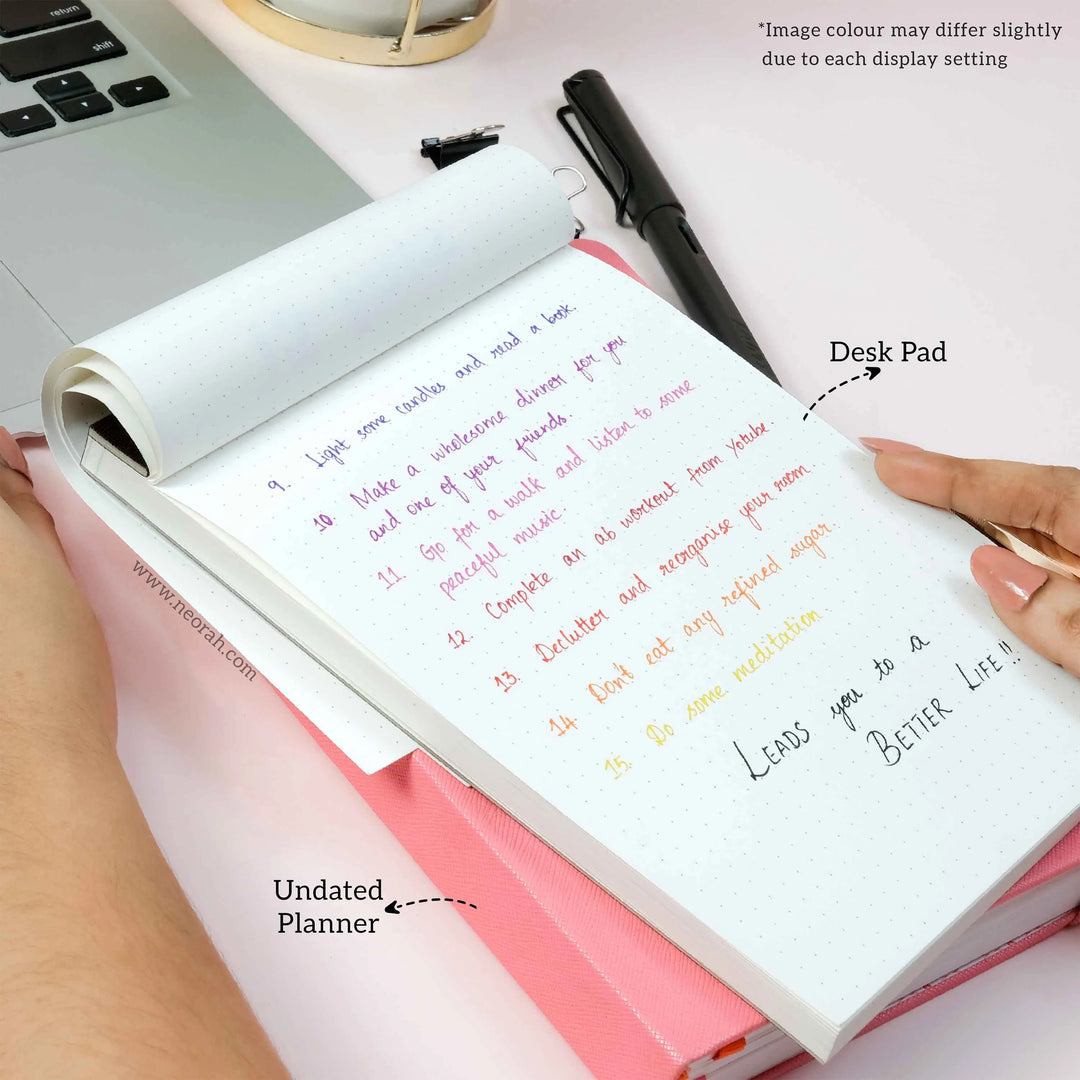 return
shift
*Image colour may differ slightly
due to each display setting
Desk Pad
9. Light some candles and read a book.
10. Make a wholesome dinner for you
and one of your friends.
11. Go for a walk and listen to some
peaceful music.
12. Complete an ab workout from Yotube.
13. Declutter and reorganise your room.
14. Don't eat any refined sugar.
15. Do some meditation.
LEADS you to a
BETTER LIFE!!
www.neorah.com
Undated
Planner